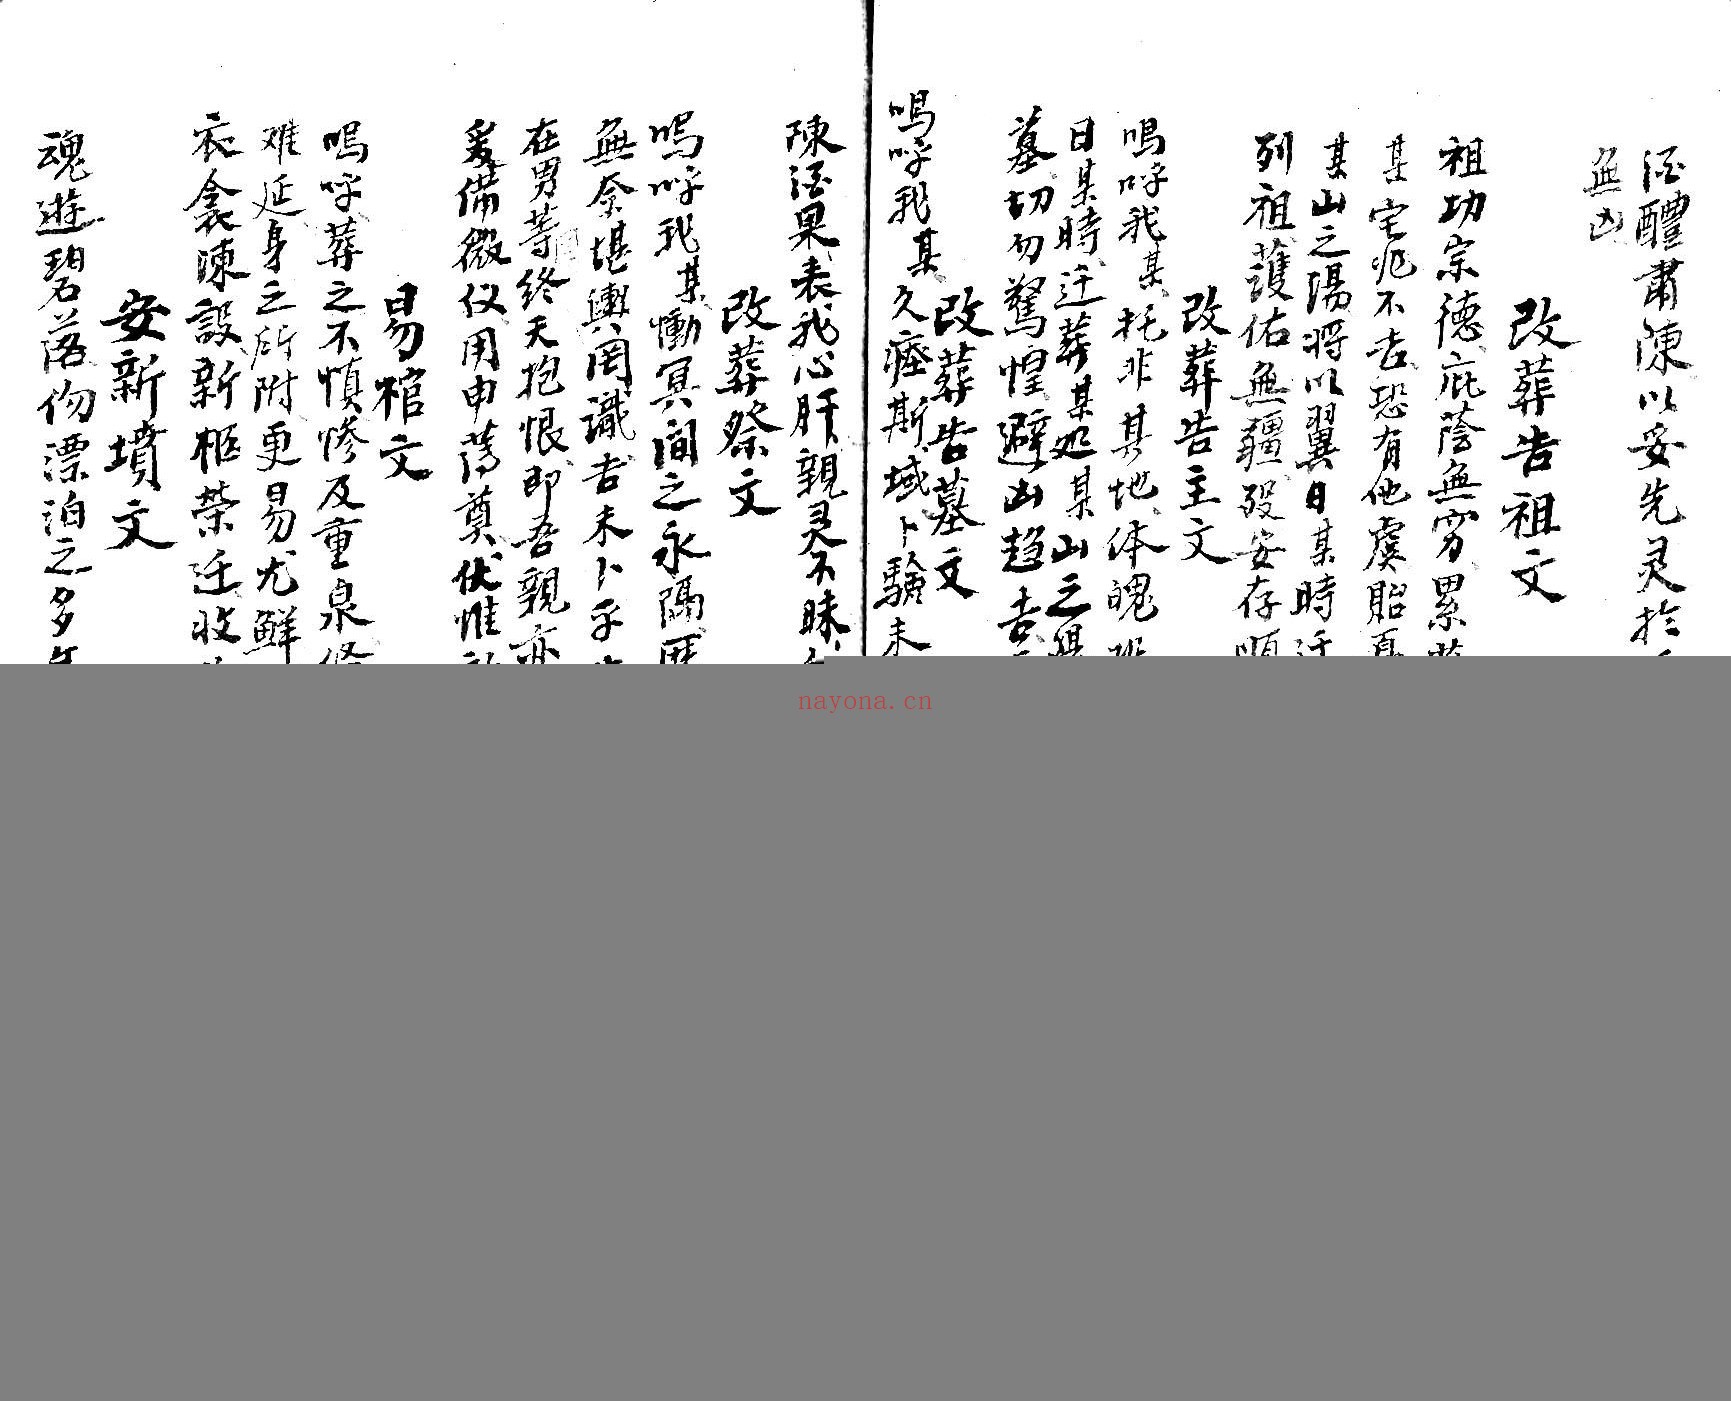 酒醴肅陳以妥先灵於
無凶
改葬告祖文
祖功宗德庇蔭無穷累
某宅兆不吉恐有他虞貽
某山之陽将以翼日某時迁
列祖護佑無疆殁安存順
改葬告主文
嗚呼我某托非其地体魄
日某時迁葬某处某山之
墓切勿驚惶避凶趋吉
改葬告墓文
嗚呼我某久瘞斯域卜驗未
陳酒果表我心肝親灵不昧
改葬祭文
嗚呼我某慟冥间之永隔
無奈堪輿罔識吉未卜乎
在男等终天抱恨即吾親亦
爰備微仪用申荐奠伏惟
易棺文
嗚呼葬之不慎惨及重泉
难延身之所附更易尤鲜
衣衾陳設新柩荣迁收
安新墳文
魂遊碧落伤漂泊之多年
nayona.cn